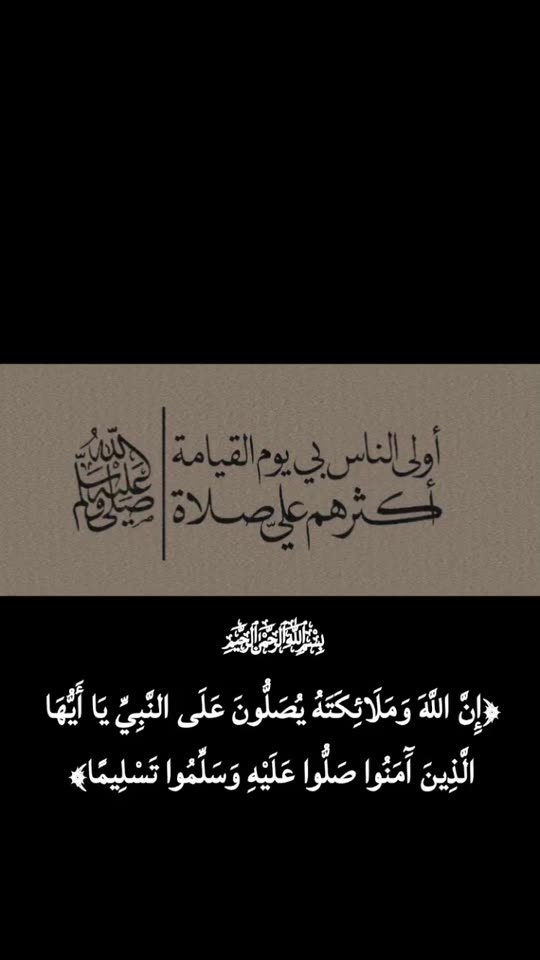 أولى الناس بي يوم القيامة
أكثرهم عليّ صلاة
صلى الله عليه وسلم
بِسْمِ اللَّهِ الرَّحْمَنِ الرَّحِيمِ
﴿إِنَّ اللَّهَ وَمَلَائِكَتَهُ يُصَلُّونَ عَلَى النَّبِيِّ يَا أَيُّهَا
الَّذِينَ آمَنُوا صَلُّوا عَلَيْهِ وَسَلِّمُوا تَسْلِيمًا﴾